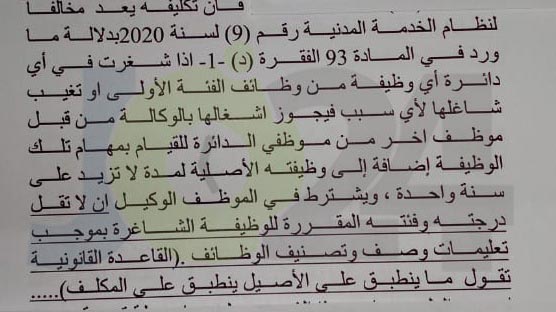 فان تكليفه يعد مخالفا
لنظام الخدمة المدنية رقم (9) لسنة 2020بدلالة ما
ورد في المادة 93 الفقرة (د) -1- اذا شغرت في أي
دائرة أي وظيفة من وظائف الفئة الأولى او تغيب
شاغلها لأي سبب فيجوز اشغالها بالوكالة من قبل
موظف اخر من موظفي الدائرة للقيام بمهام تلك
الوظيفة إضافة إلى وظيفته الأصلية لمدة لا تزيد على
سنة واحدة ، ويشترط في الموظف الوكيل ان لا تقل
درجته وفئته المقررة للوظيفة الشاغرة بموجب
تعليمات وصف وتصنيف الوظائف .(القاعدة القانونية
تقول ما ينطبق على الأصيل ينطبق على المكلف).....